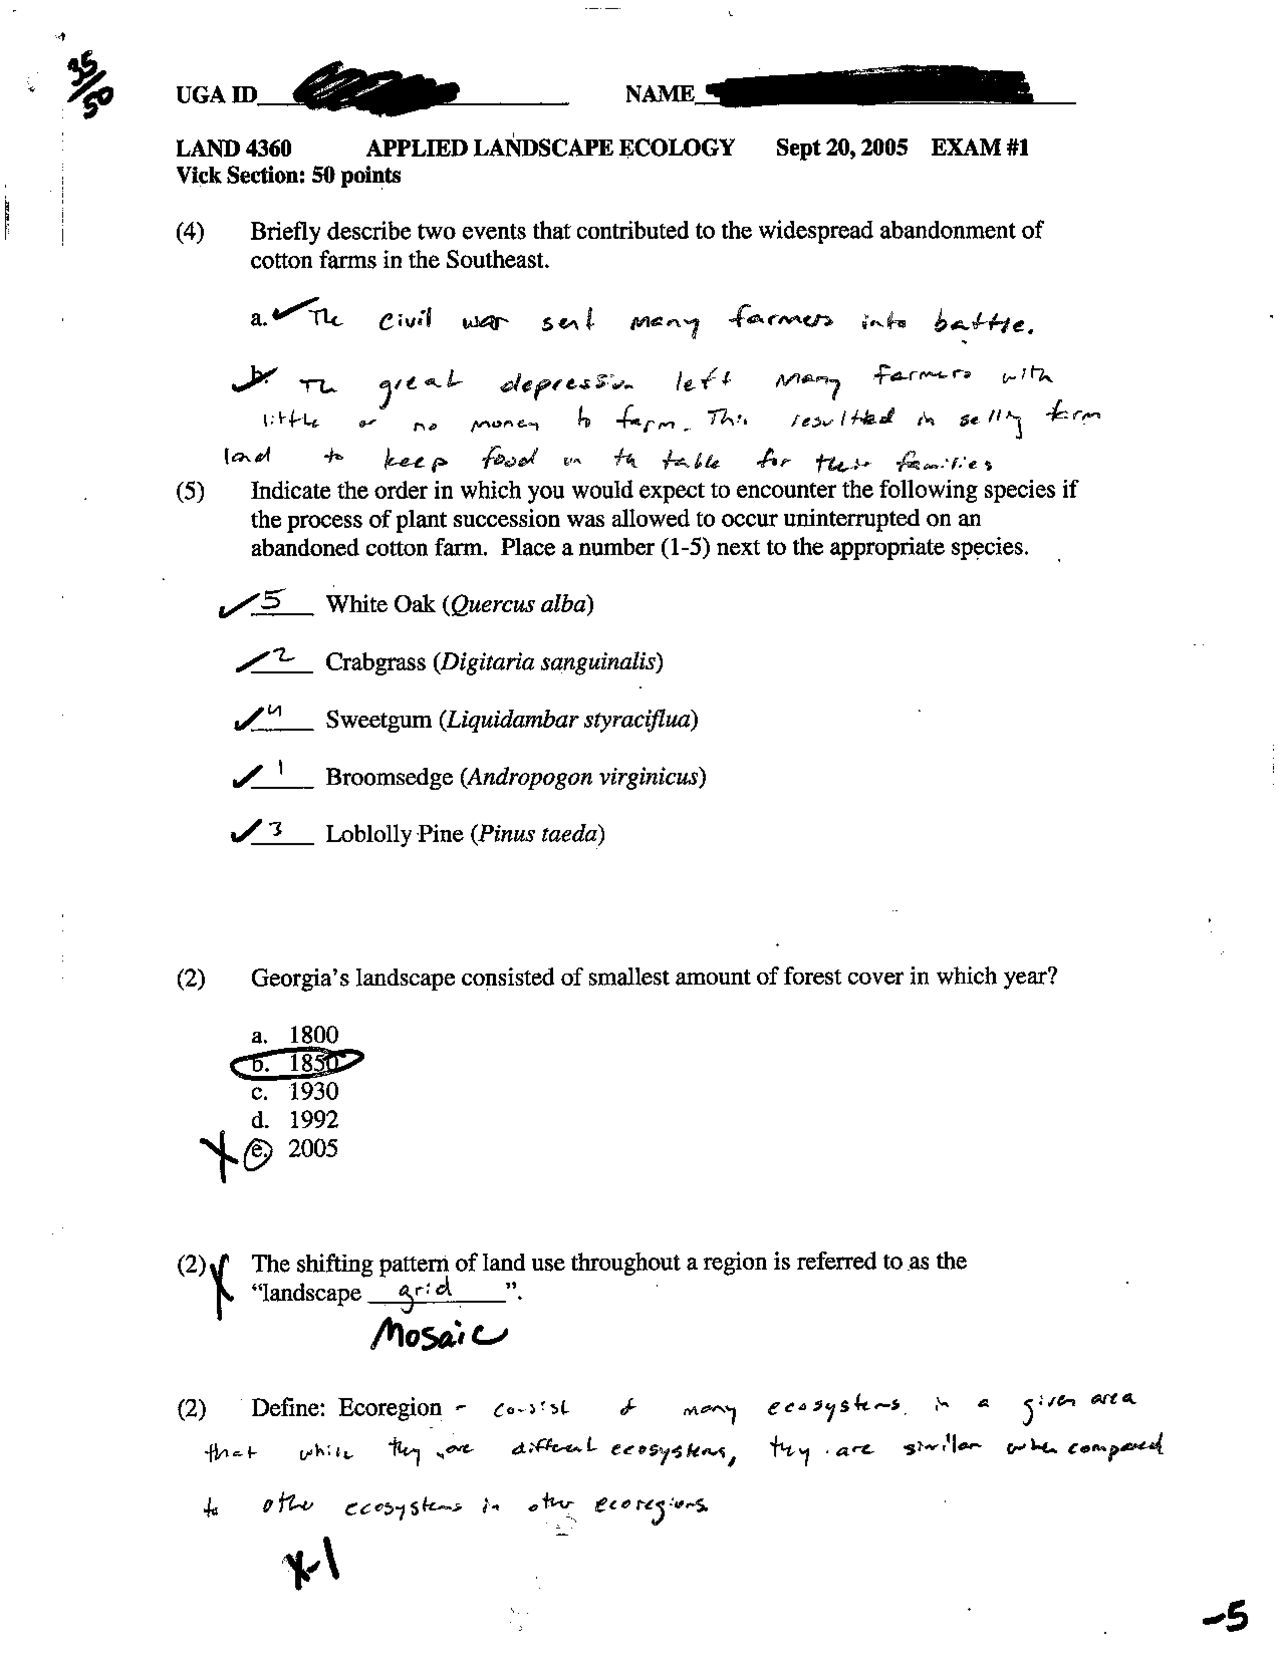 35/50
UGA ID NAME
LAND 4360 APPLIED LANDSCAPE ECOLOGY Sept 20, 2005 EXAM #1
Vick Section: 50 points
(4) Briefly describe two events that contributed to the widespread abandonment of
cotton farms in the Southeast.
a. The Civil war sent many farmers into battle.
b. The great depression left many farmers with
little or no money to farm. This resultted in selling farm
land to keep food on the table for their families
(5) Indicate the order in which you would expect to encounter the following species if
the process of plant succession was allowed to occur uninterrupted on an
abandoned cotton farm. Place a number (1-5) next to the appropriate species.
5 White Oak (Quercus alba)
2 Crabgrass (Digitaria sanguinalis)
4 Sweetgum (Liquidambar styraciflua)
1 Broomsedge (Andropogon virginicus)
3 Loblolly Pine (Pinus taeda)
(2) Georgia's landscape consisted of smallest amount of forest cover in which year?
a. 1800
b. 1850
c. 1930
d. 1992
X e. 2005
(2) X The shifting pattern of land use throughout a region is referred to as the
"landscape grid".
Mosaic
(2) Define: Ecoregion - consist of many ecosystems in a given area
that while they are different ecosystems, they are similar when compared
to other ecosystems in other ecoregions.
X-1
-5